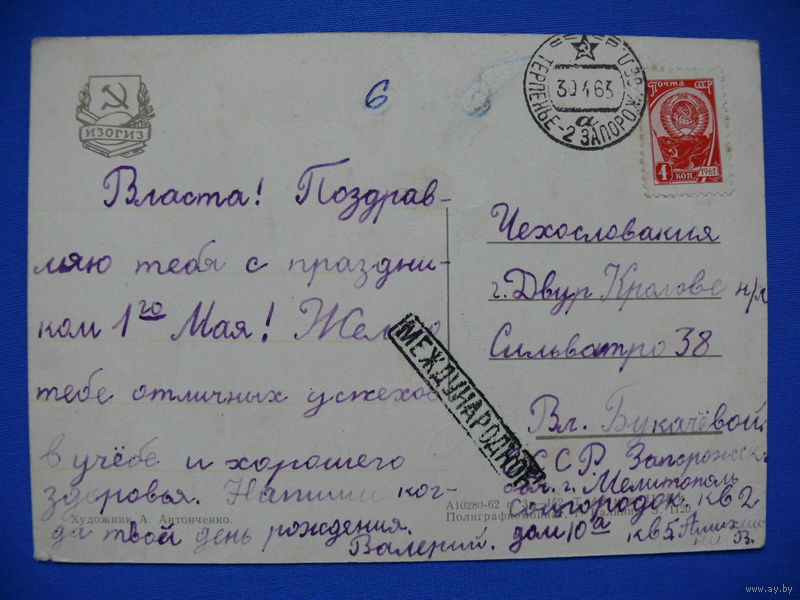 ИЗОГИЗ
6
ТЕРПЕНЬЕ-2 ЗАПОРОЖ. ОБЛ.
30 4 63
а
Почта СССР
4 КОП. 1961
Власта! Поздрав-
ляю тебя с праздни-
ком 1го Мая! Желаю
тебе отличных успехов
в учёбе и хорошего
здоровья. Напиши ког-
да твой день рождения.
Валерий.
Художник А. Антонченко.
МЕЖДУНАРОДНОЕ
Чехословакия
г. Двур Кралове н/л
Сильватро 38
Вл. Букачёвой
СССР Запорожск.
обл. г. Мелитополь
Соцгородок, кв 2
дом 10а кв 5
В.
А10280-62 г.
Полиграфкомбинат
www.ay.by